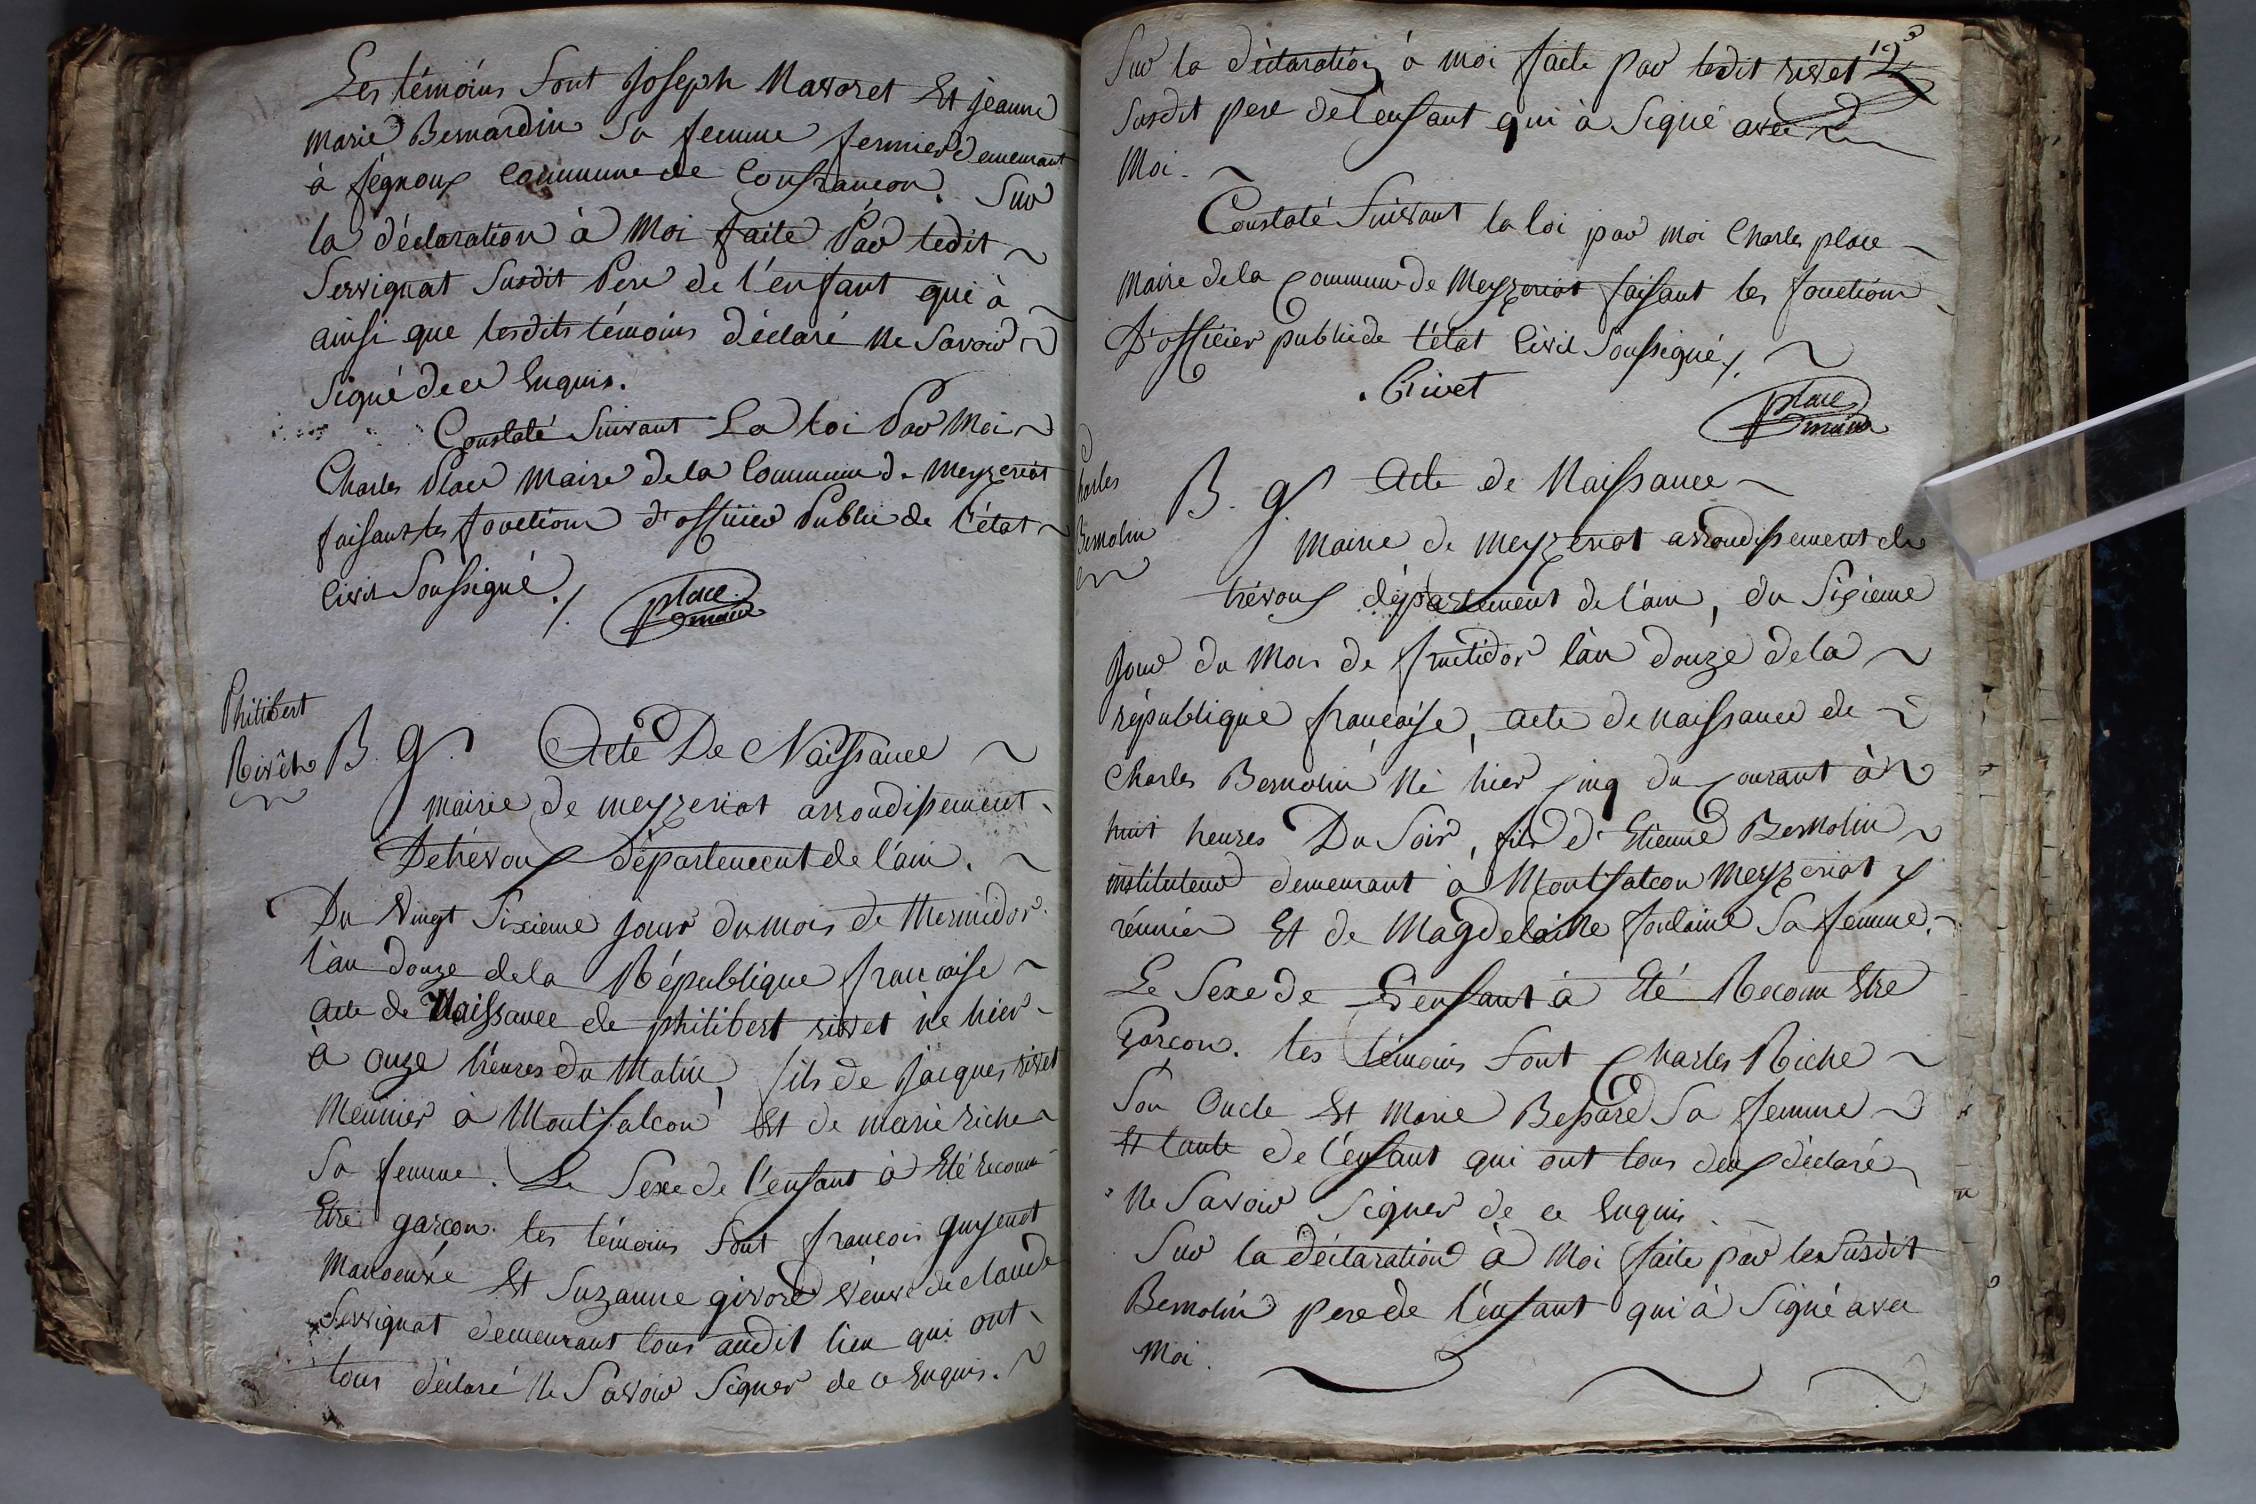 Les témoins sont Joseph Mavoret Et jeanne
marie Bernardin Sa femme fermier demeurant
à fégnoux Commune de Confrançon. Sur
la déclaration à Moi faite Par ledit
Servignat Susdit Pere de l'enfant qui à
ainsi que lesdits témoins déclaré Ne Savoir
Signé de ce Enquis.
Constaté Suivant La Loi Par Moi
Charles Place Maire de la Commune de Meyzeriat
faisant les fonctions d'officier Public de l'état
Civil Soussigné ./.
place
maire
Philibert
Rivet
B. g. Acte De Naissance
mairie de meyzeriat arrondissement
De trévoux département de l'ain.
Du Vingt Sixieme jour du mois de thermidor
l'an douze de la République francaise
acte de Naissance de philibert rivet né hier
à onze heures du Matin, fils de Jacques rivet
Meunier à Montfalcon Et de marie riche
Sa femme. Le Sexe de l'enfant à Eté reconnu
Etre garçon. les témoins Sont françois guyenot
Manoeuvre Et Suzanne givord Veuve de claude
Servignat demeurant tous audit lieu qui ont
tous déclaré Ne Savoir Signer de ce Enquis.
123
Sur la déclaration à moi faite par ledit rivet
Susdit pere de l'enfant qui à Signé avec
Moi.
Constaté Suivant la loi par moi Charles place
Maire de la Commune de Meyzeriat faisant les fonctions
D'officier public de l'état Civil Soussigné /.
Rivet
place
maire
Charles
Bernolin
B. g. Acte de Naissance
Mairie de meyzeriat arrondissement de
trévoux département de l'ain, du Sixieme
jour du Mois de fructidor l'an douze de la
république française, acte de naissance de
Charles Bernolin Né hier Cinq du Courant à
huit heures Du Soir, fils d'Etienne Bernolin
instituteur demeurant à Montfalcon Meyzeriat
réunies Et de Magdelaine fontaine Sa femme.
Le Sexe de L'enfant à Eté Reconnu Etre
Garcon. les témoins Sont Charles Riche
Son Oncle Et Marie Sa femme
Et tante de l'enfant qui ont tous deux déclaré
Ne Savoir Signer de ce Enquis.
Sur la déclaration à Moi faite par le Susdit
Bernolin pere de l'enfant qui à Signé avec
Moi.